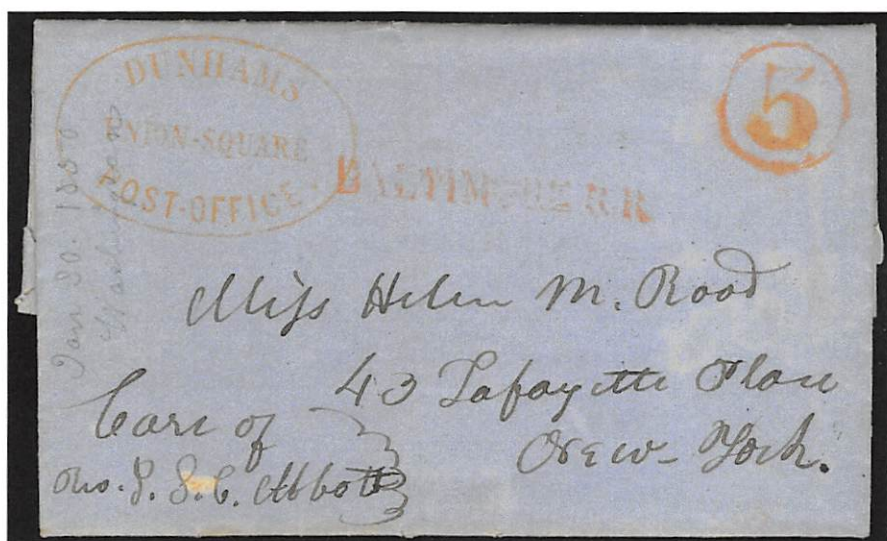 DUNHAMS
UNION-SQUARE
POST-OFFICE
BALTIMORE R.R.
5
Jan 20. 1850
Miss Helen M. Rood
43 Lafayette Place
New-York.
Care of
J. S. C. Abbott